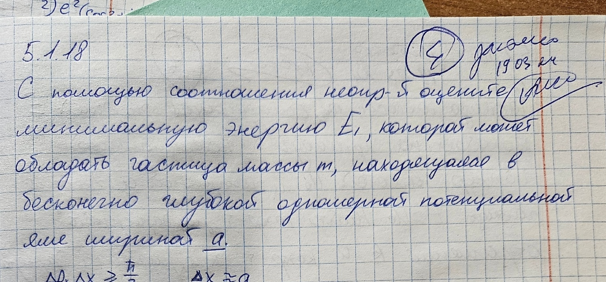 2) e²
5.1.18
С помощью соотношения неопр-й оцените
минимальную энергию E₁, которой может
обладать частица массы m, находящаяся в
бесконечно глубокой одномерной потенциальной
яме шириной a.
Δp·Δx ≥ ħ/2 Δx ≈ a